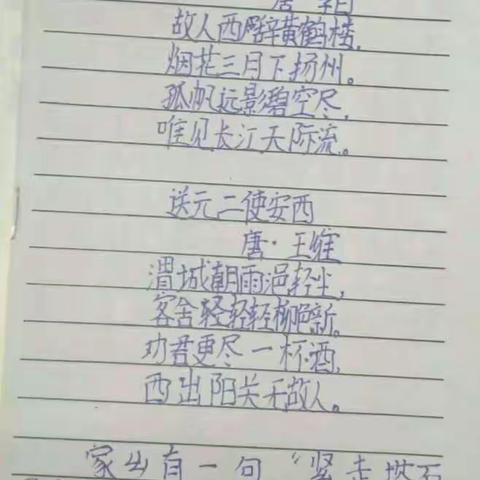 唐 李白
故人西辞黄鹤楼,
烟花三月下扬州。
孤帆远影碧空尽,
唯见长江天际流。
送元二使安西
唐·王维
渭城朝雨浥轻尘,
客舍轻轻轻柳色新。
劝君更尽一杯酒,
西出阳关无故人。
家乡有一句“紧走